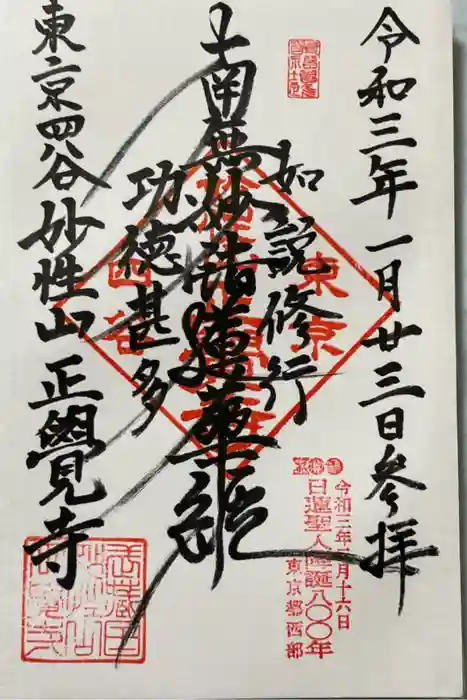 令和三年一月廿三日参拝
如説修行
南無妙法蓮華経
功徳甚多
東京四谷妙性山正覺寺
東京
四谷
令和三年二月十六日
日蓮聖人降誕八〇〇年
東京都西部